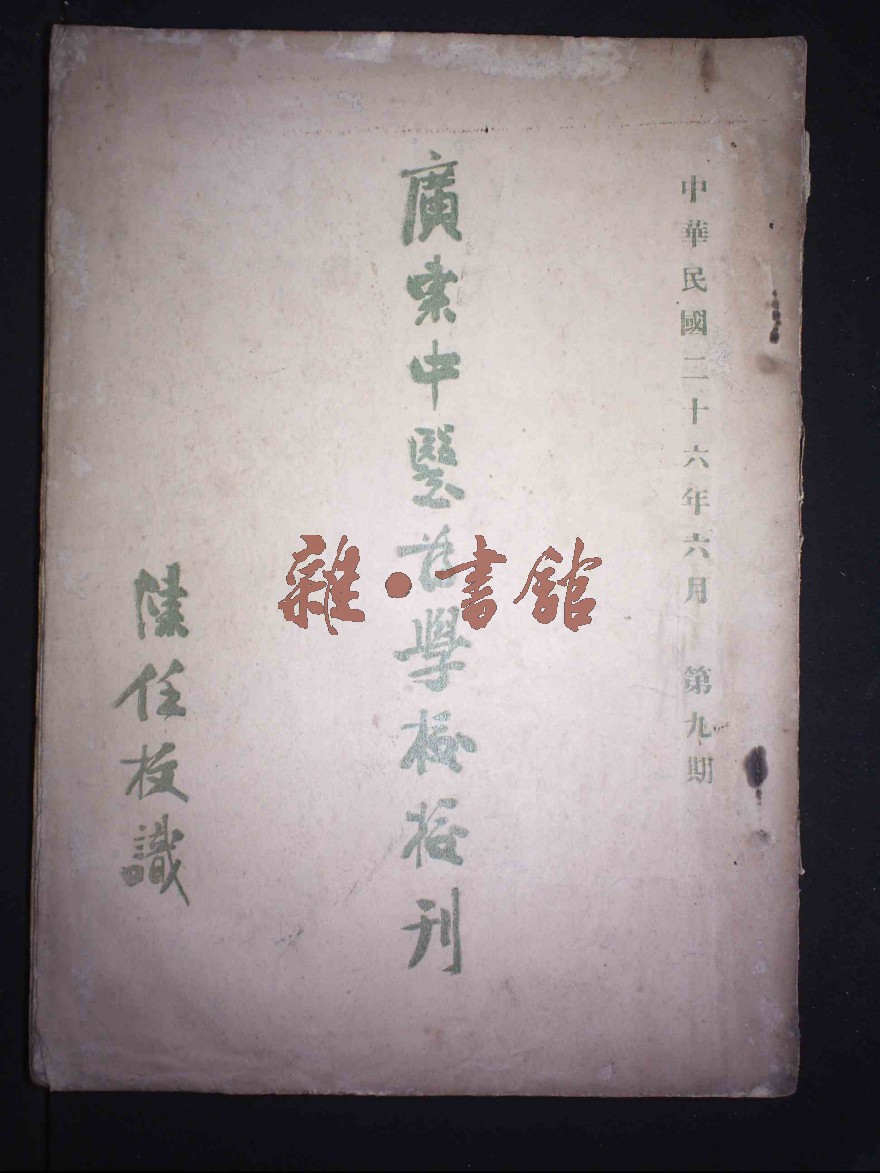 中華民國二十六年六月 第九期
廣東中醫葯學校校刊
陳任枚識
雜·書館